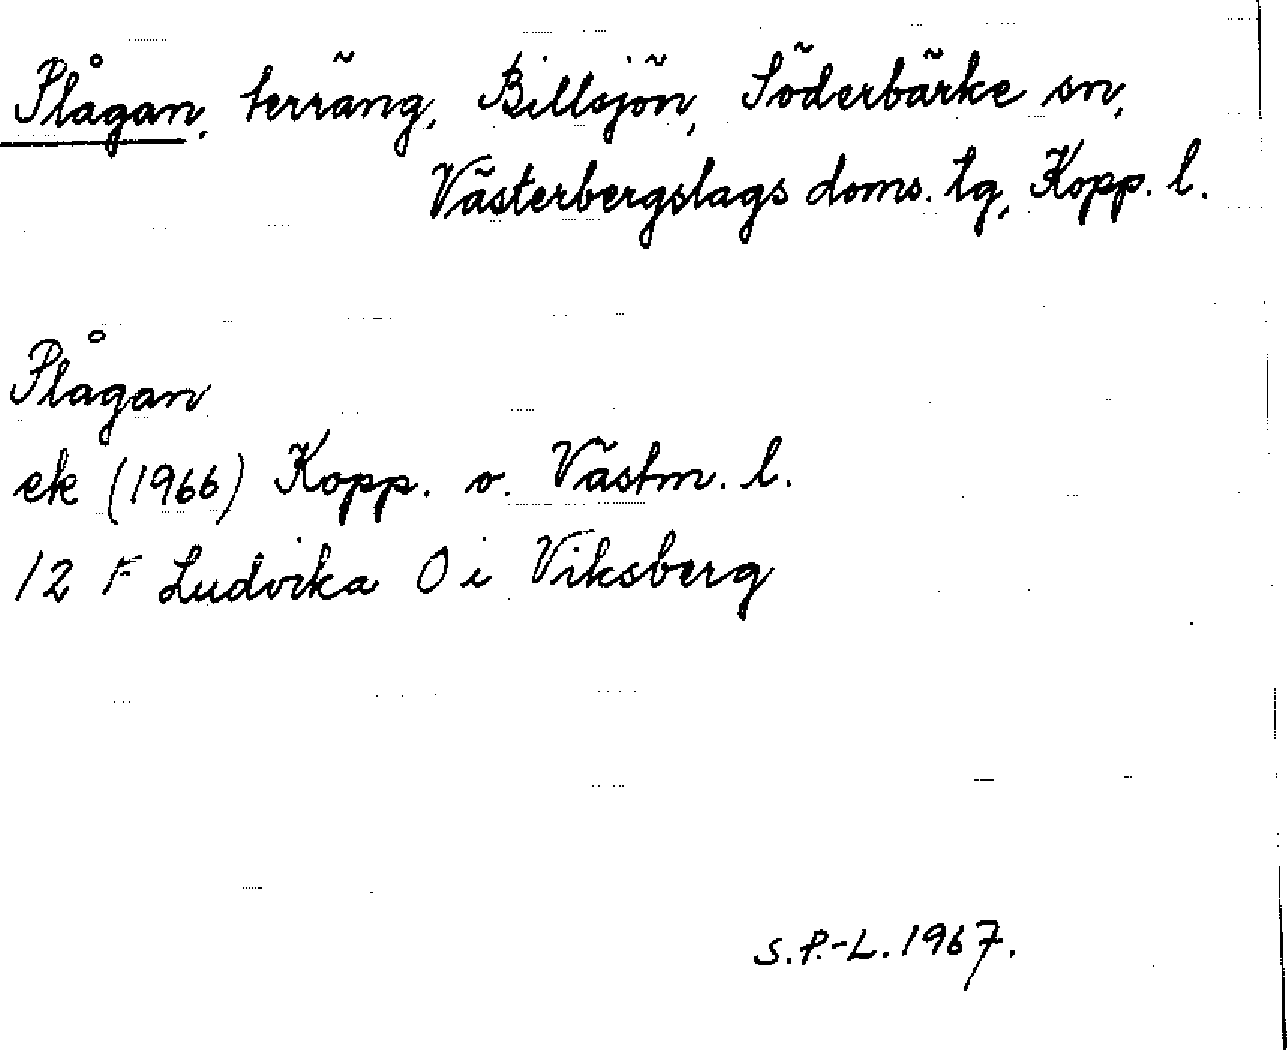 Plågan, terräng, Billsjön, Söderbärke sn,
Västerbergslags doms. tg, Kopp. l.
Plågan
ek (1966) Kopp. o. Västm. l.
12 F Ludvika O i Viksberg
S.P.-L. 1967.